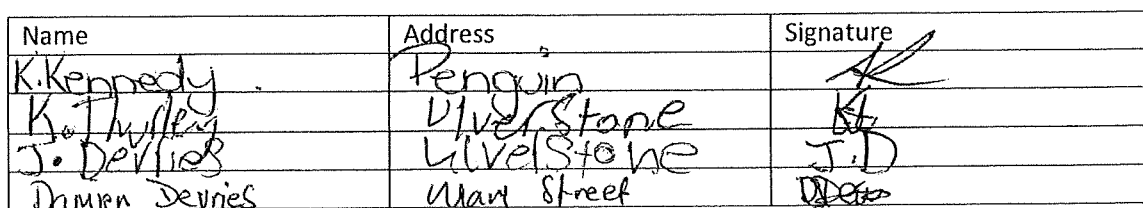 Name Address Signature
K.Kennedy Penguin
K. Thurley Ulverstone Kt
J. Devries Ulverstone J.D
Devries Street